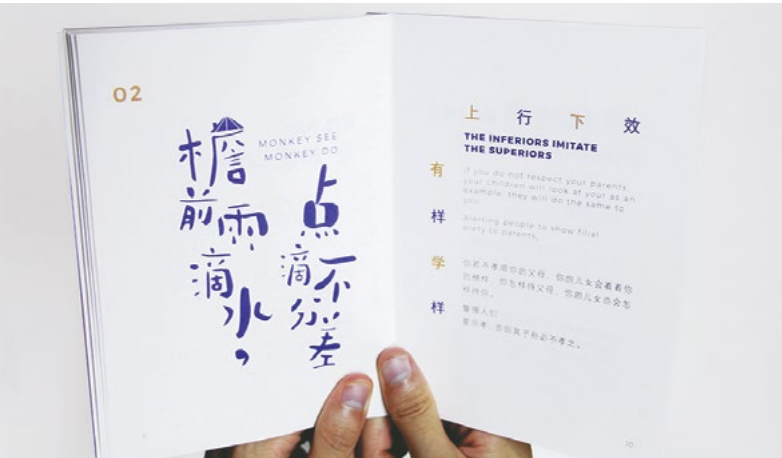 02
檐前雨滴水，
点滴不分差
MONKEY SEE
MONKEY DO
上行下效
THE INFERIORS IMITATE
THE SUPERIORS
有样学样
If you do not respect your parents,
your children will look at you as an
example, they will do the same to
you.
Alerting people to show filial
piety to parents.
你若不孝顺你的父母，你的儿女会看着你
的榜样，你怎样待父母，你的儿女亦会怎
样待你。
警惕人们：
要尽孝，否则其子孙必不孝之。
10